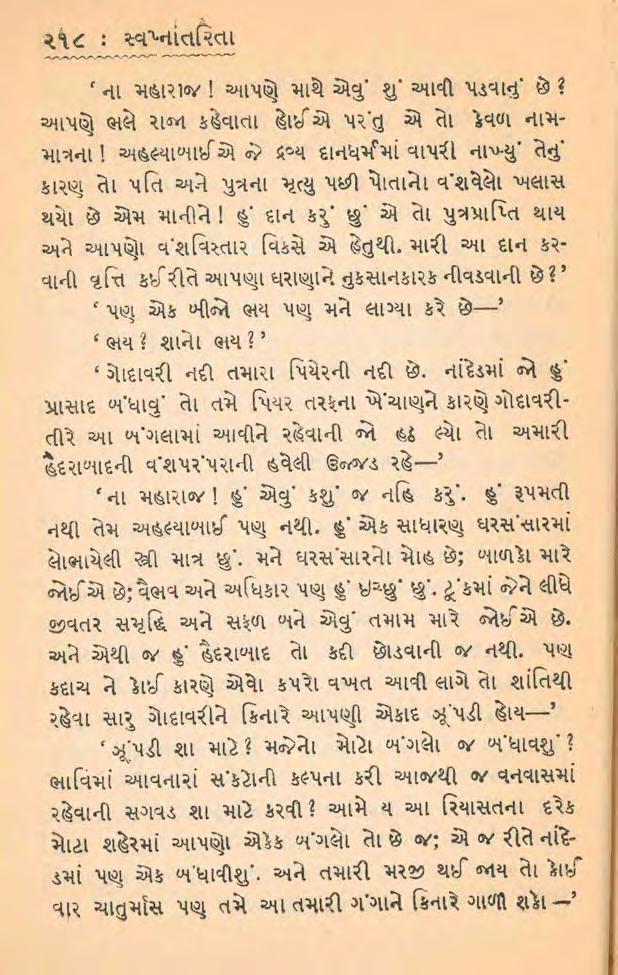 ૨૧૮ : સ્વપ્નાંતરિતા
‘ ના મહારાજ ! આપણે માથે એવું શું આવી પડવાનું છે ?
આપણે ભલે રાજા કહેવાતા હોઈએ પરંતુ એ તો કેવળ નામ-
માત્રના ! અહલ્યાબાઈએ જે દ્રવ્ય દાનધર્મમાં વાપરી નાખ્યું તેનું
કારણ તો પતિ અને પુત્રના મૃત્યુ પછી પોતાનો વંશવેલો ખલાસ
થયો છે એમ માનીને ! હું દાન કરું છું એ તો પુત્રપ્રાપ્તિ થાય
અને આપણો વંશવિસ્તાર વિકસે એ હેતુથી. મારી આ દાન કર-
વાની વૃત્તિ કઈ રીતે આપણા ઘરાણાને નુકસાનકારક નીવડવાની છે ? ’
‘ પણ એક બીજો ભય પણ મને લાગ્યા કરે છે—’
‘ ભય ? શાનો ભય ? ’
‘ ગોદાવરી નદી તમારા પિયેરની નદી છે. નાંદેડમાં જો હું
પ્રાસાદ બંધાવું તો તમે પિયર તરફના ખેંચાણને કારણે ગોદાવરી-
તીરે આ બંગલામાં આવીને રહેવાની જો હઠ લ્યો તો અમારી
હૈદરાબાદની વંશપરંપરાની હવેલી ઉજ્જડ રહે—’
‘ ના મહારાજ ! હું એવું કશું જ નહિ કરું. હું રૂપમતી
નથી તેમ અહલ્યાબાઈ પણ નથી. હું એક સાધારણ ઘરસંસારમાં
લોભાયેલી સ્ત્રી માત્ર છું. મને ઘરસંસારનો મોહ છે; બાળકો મારે
જોઈએ છે; વૈભવ અને અધિકાર પણ હું ઇચ્છું છું. ટૂંકમાં જેને લીધે
જીવતર સમૃદ્ધિ અને સફળ બને એવું તમામ મારે જોઈએ છે.
અને એથી જ હું હૈદરાબાદ તો કદી છોડવાની જ નથી. પણ
કદાચ ને કોઈ કારણે એવો કપરો વખત આવી લાગે તો શાંતિથી
રહેવા સારુ ગોદાવરીને કિનારે આપણી એકાદ ઝૂંપડી હોય—’
‘ ઝૂંપડી શા માટે ? મજેનો મોટો બંગલો જ બંધાવશું ?
ભાવિમાં આવનારાં સંકટોની કલ્પના કરી આજથી જ વનવાસમાં
રહેવાની સગવડ શા માટે કરવી ? આમે ય આ રિયાસતના દરેક
મોટા શહેરમાં આપણો એકેક બંગલો તો છે જ; એ જ રીતે નાંદે-
ડમાં પણ એક બંધાવીશું. અને તમારી મરજી થઈ જાય તો કોઈ
વાર ચાતુર્માસ પણ તમે આ તમારી ગંગાને કિનારે ગાળી શકો —’